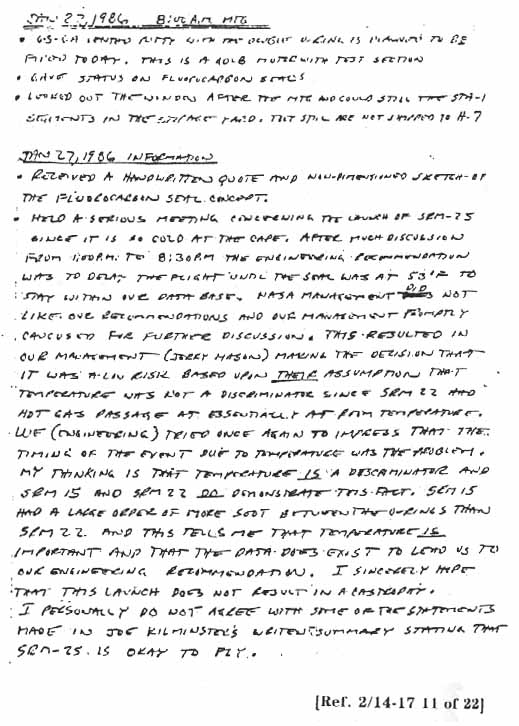 JAN 27, 1986 8:00 A.M. MTG
• PUTTY WITH THE O-RING IS PLANNED TO BE
FIRED TODAY. THIS IS A 40LB MOTOR WITH TEST SECTION
• GAVE STATUS ON FLUOROCARBON SEALS
• LOOKED OUT THE WINDOW AFTER THE MTG AND COULD STILL THE STA-1
SEGMENTS IN THE STORAGE YARD. THEY STILL ARE NOT SHIPPED TO H-7
JAN 27, 1986 INFORMATION
• RECEIVED A HANDWRITTEN QUOTE AND NON-DIMENSIONED SKETCH OF
THE FLUOROCARBON SEAL CONCEPT.
• HELD A SERIOUS MEETING CONCERNING THE LAUNCH OF SRM-25
SINCE IT IS SO COLD AT THE CAPE. AFTER MUCH DISCUSSION
FROM 1:00P.M. TO 8:30PM THE ENGINEERING RECOMMENDATION
WAS TO DELAY THE FLIGHT UNTIL THE SEAL WAS AT 53°F TO
STAY WITHIN OUR DATA BASE. NASA MANAGEMENT DID NOT
LIKE OUR RECOMMENDATIONS AND OUR MANAGEMENT PROMPTLY
CAUCUSED FOR FURTHER DISCUSSION. THIS RESULTED IN
OUR MANAGEMENT (JERRY MASON) MAKING THE DECISION THAT
IT WAS A LOW RISK BASED UPON THEIR ASSUMPTION THAT
TEMPERATURE WAS NOT A DISCRIMINATOR SINCE SRM 22 HAD
HOT GAS PASSAGE AT ESSENTIALLY AT ROOM TEMPERATURE.
WE (ENGINEERING) TRIED ONCE AGAIN TO IMPRESS THAT THE
TIMING OF THE EVENT DUE TO TEMPERATURE WAS THE PROBLEM.
MY THINKING IS THAT TEMPERATURE IS A DESCRIMINATOR AND
SRM 15 AND SRM 22 DO DEMONSTRATE THIS FACT. SRM 15
HAD A LARGE ORDER OF MORE SOOT BETWEEN THE O-RINGS THAN
SRM 22 AND THIS TELLS ME THAT TEMPERATURE IS
IMPORTANT AND THAT THE DATA DOES EXIST TO LEAD US TO
OUR ENGINEERING RECOMMENDATION. I SINCERELY HOPE
THAT THIS LAUNCH DOES NOT RESULT IN A CASTROPHY.
I PERSONALLY DO NOT AGREE WITH SOME OF THE STATEMENTS
MADE IN JOE KILMINSTER'S WRITTEN SUMMARY STATING THAT
SRM-25 IS OKAY TO FLY.
[Ref. 2/14-17 11 of 22]